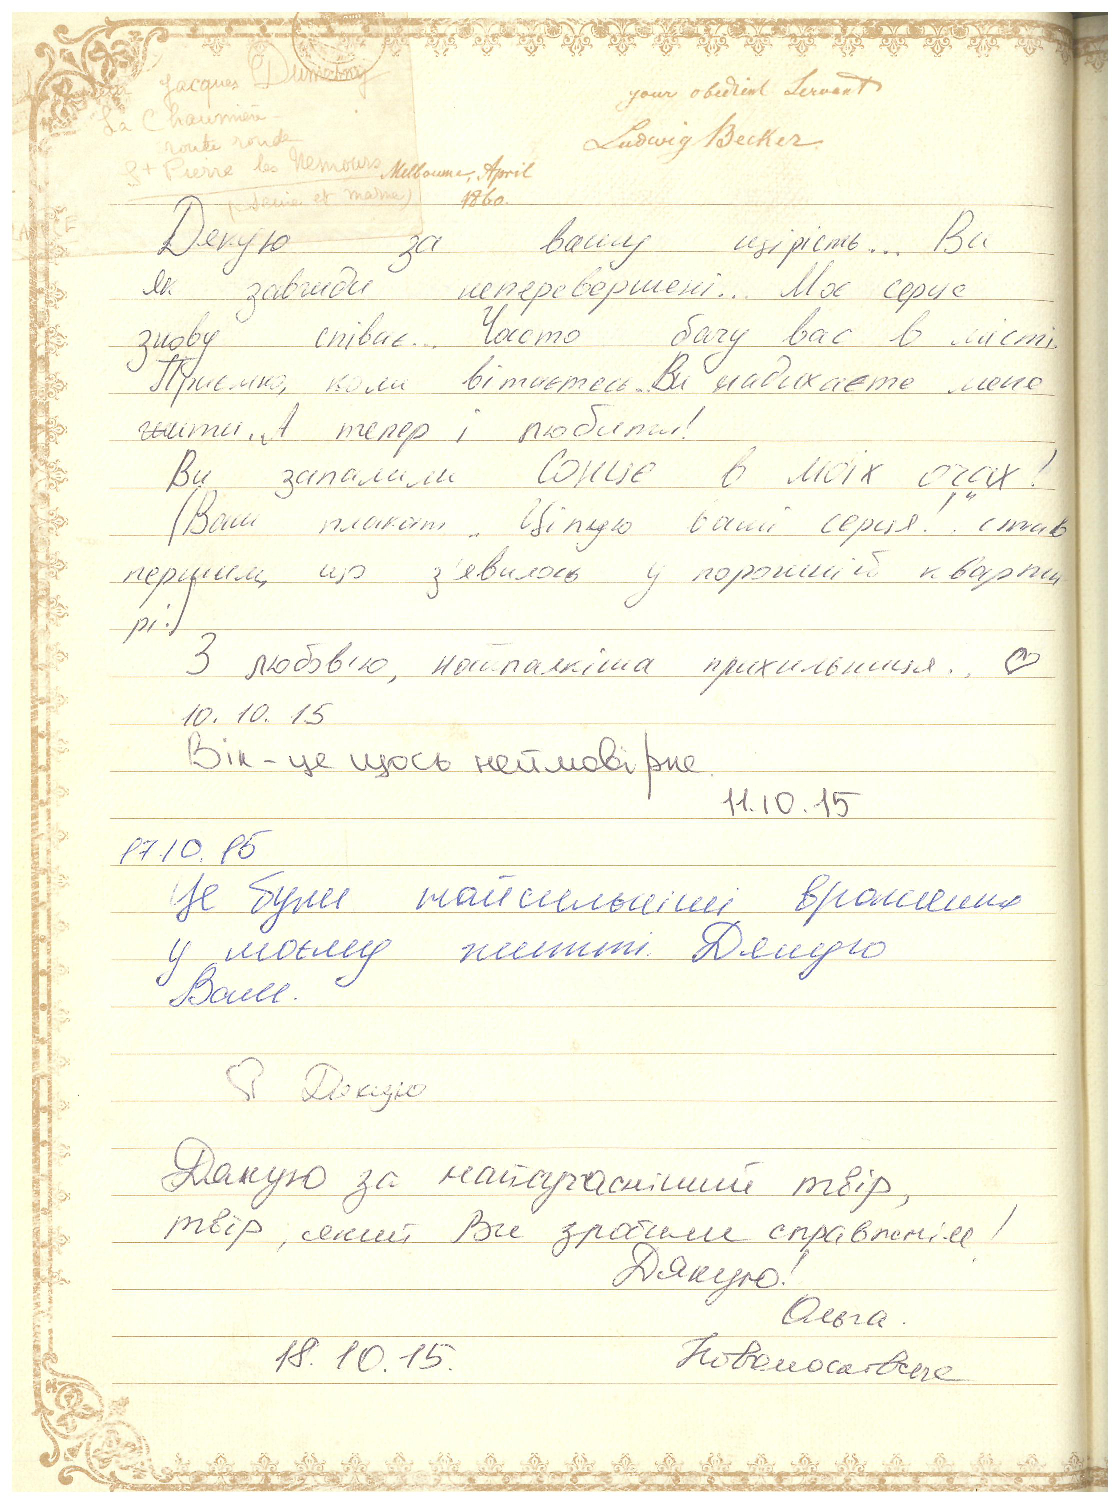 Jacques Dumesny
La Chaumière
route ronde
St Pierre les Nemours
(Seine et Marne)
your obedient Servant
Ludwig Becker
Melbourne, April
1860.
Дякую за вашу щирість... Ви
як завжди неперевершені... Моє серце
знову співає... Часто бачу вас в місті.
Приємно, коли вітаєтесь. Ви надихаєте мене
жити. А тепер і любити!
Ви запалили сонце в моїх очах!
(Ваш плакат „Цілую ваші серця!" став
першим, що з'явилось у порожній кварти
рі.)
З любов'ю, найпалкіша прихильниця.. ♡
10. 10. 15
Вік - це щось неймовірне.
11.10.15
17.10.15
Це були найсильніші враження
у моєму житті. Дякую
Вам.
Дякую
Дякую за найсучасніший твір,
твір, який Ви зробили справжнім!
Дякую!
Ольга
18.10.15.